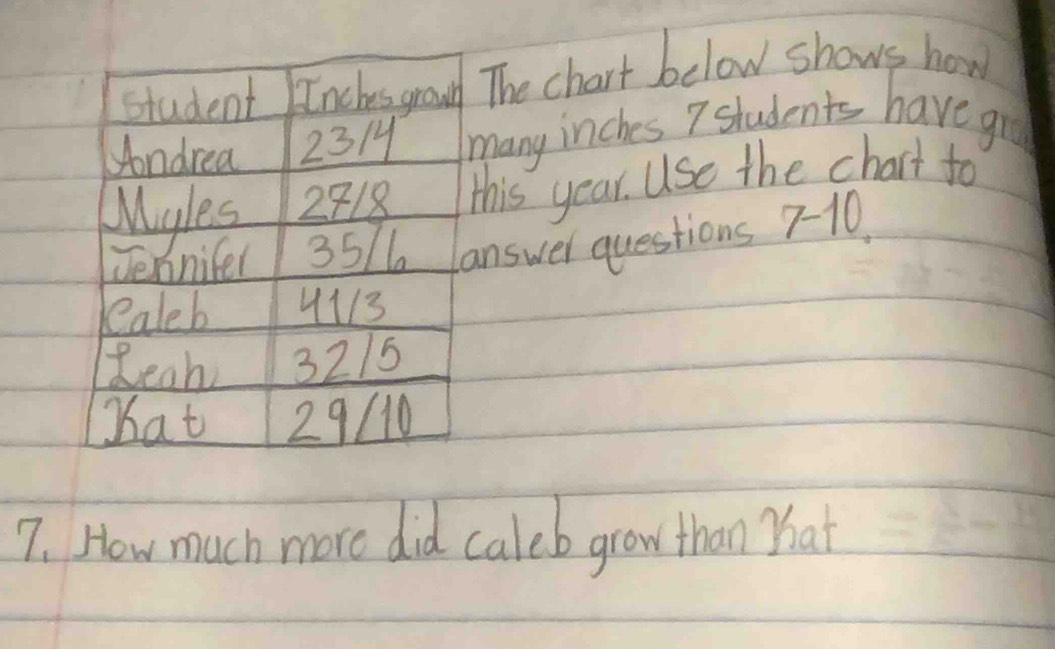 Student Inches grown
Andrea 23/4
Myles 27/8
Jennifer 35/6
Caleb 41/3
Leah 32/5
Kat 29/10
The chart below shows how
many inches 7 students have
this year. Use the chart to
answer questions 7-10.
7. How much more did caleb grow than Kat